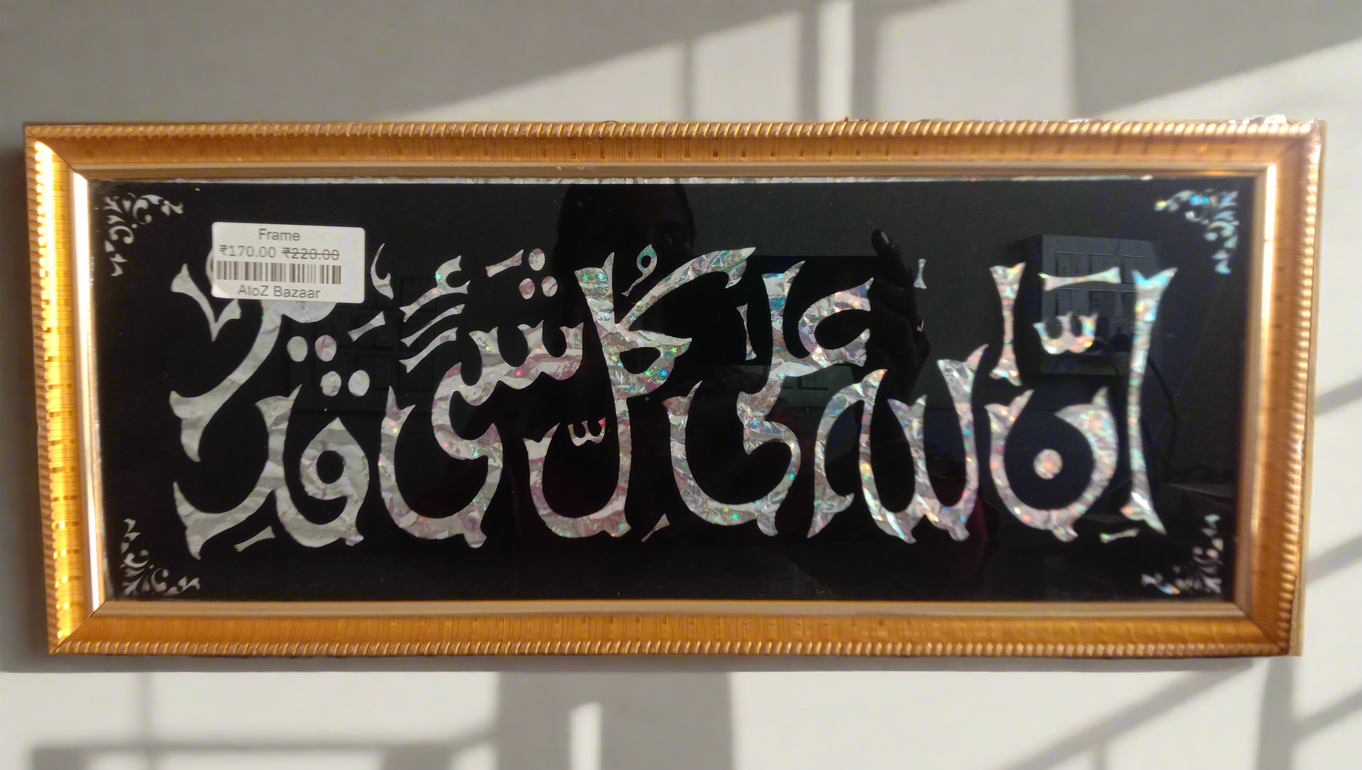 Frame
₹170.00 ₹220.00
AtoZ Bazaar
اِنَّ اللهَ عَلٰى كُلِّ شَىْءٍ قَدِيرٌ